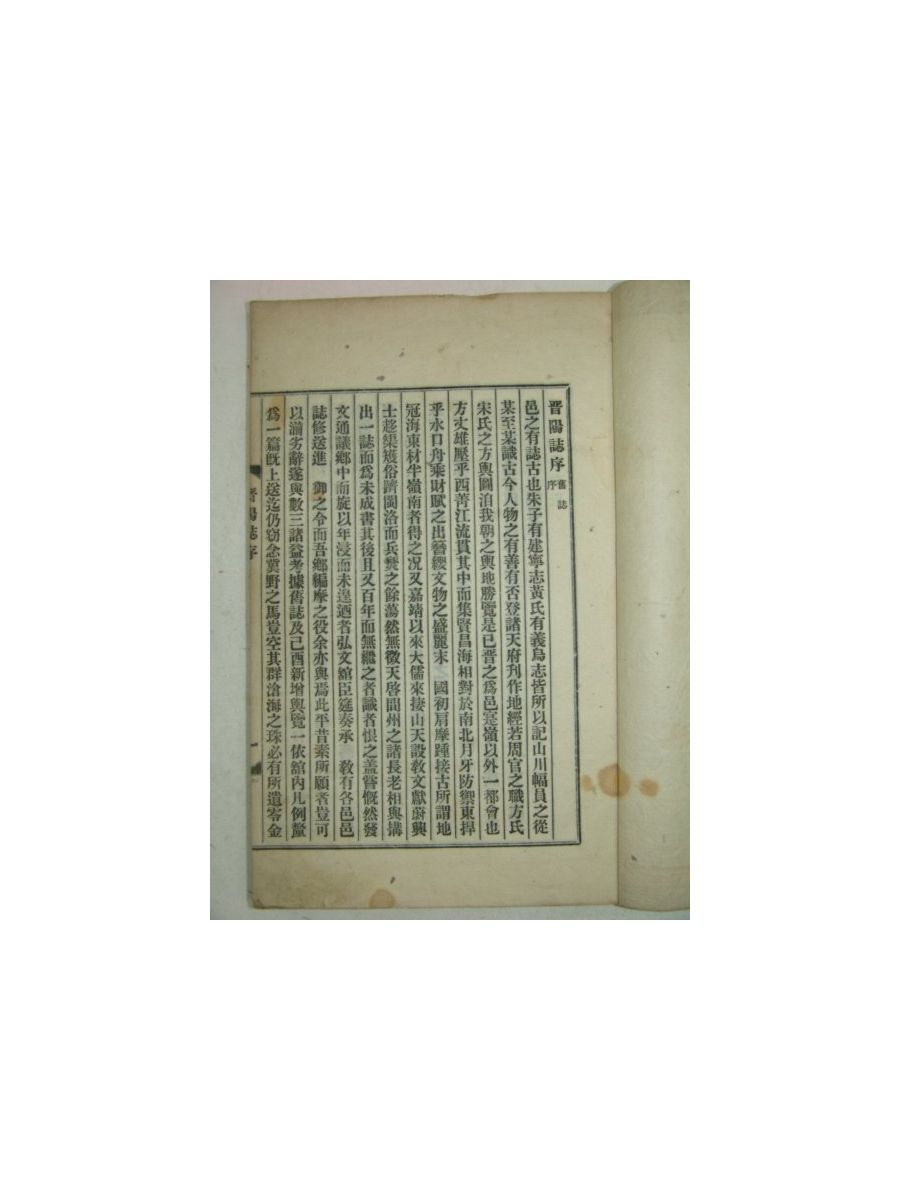 晋陽誌序 舊誌序
邑之有誌古也朱子有建寧志黃氏有義烏志皆所以記山川幅員之從
某至某識古今人物之有善有否登諸天府刊作地經若周官之職方氏
宋氏之方輿圖洎我朝之輿地勝覽是已晋之爲邑寔嶺以外一都會也
方丈雄壓乎西菁江流貫其中而集賢昌海相對於南北月牙防禦東捍
乎水口舟乘財賦之出簪纓文物之盛麗末 國初肩摩踵接古所謂地
冠海東材半嶺南者得之况又嘉靖以來大儒來捿山天設敎文獻蔚興
士趍榘矱俗躋閩洛而兵燹之餘蕩然無徵天啓間州之諸長老相與搆
出一誌而爲未成書其後且又百年而無繼之者識者恨之盖嘗慨然發
文通議鄕中而旋以年浸而未遑廼者弘文舘臣筵奏承 敎有各邑邑
誌修送進 御之令而吾鄕編摩之役余亦與焉此平昔素所願者豈可
以湔劣辭遂與數三諸益考據舊誌及己酉新增輿覽一依舘內凡例釐
爲一篇旣上送迄仍窃念冀野之馬豈空其群滄海之珠必有所遺零金
晋陽誌序 一